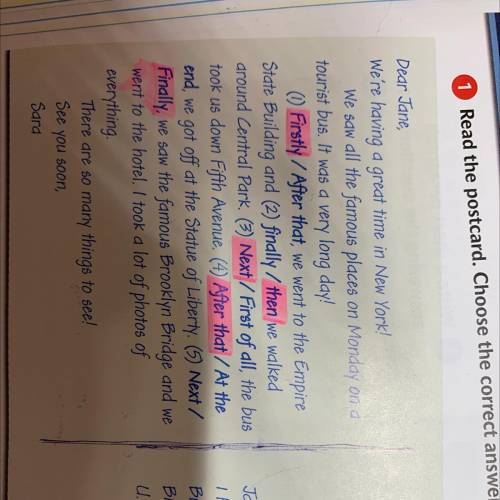 1 Read the postcard. Choose the correct answe
Dear Jane,
We're having a great time in New York!
We saw all the famous places on Monday on a
tourist bus. It was a very long day!
(1) Firstly / After that, we went to the Empire
State Building and (2) finally / then we walked
around Central Park. (3) Next / First of all, the bus
took us down Fifth Avenue. (4) After that / At the
end, we got off at the Statue of Liberty. (5) Next /
Finally, we saw the famous Brooklyn Bridge and we
went to the hotel. I took a lot of photos of
everything.
There are so many things to see!
See you soon,
Sara